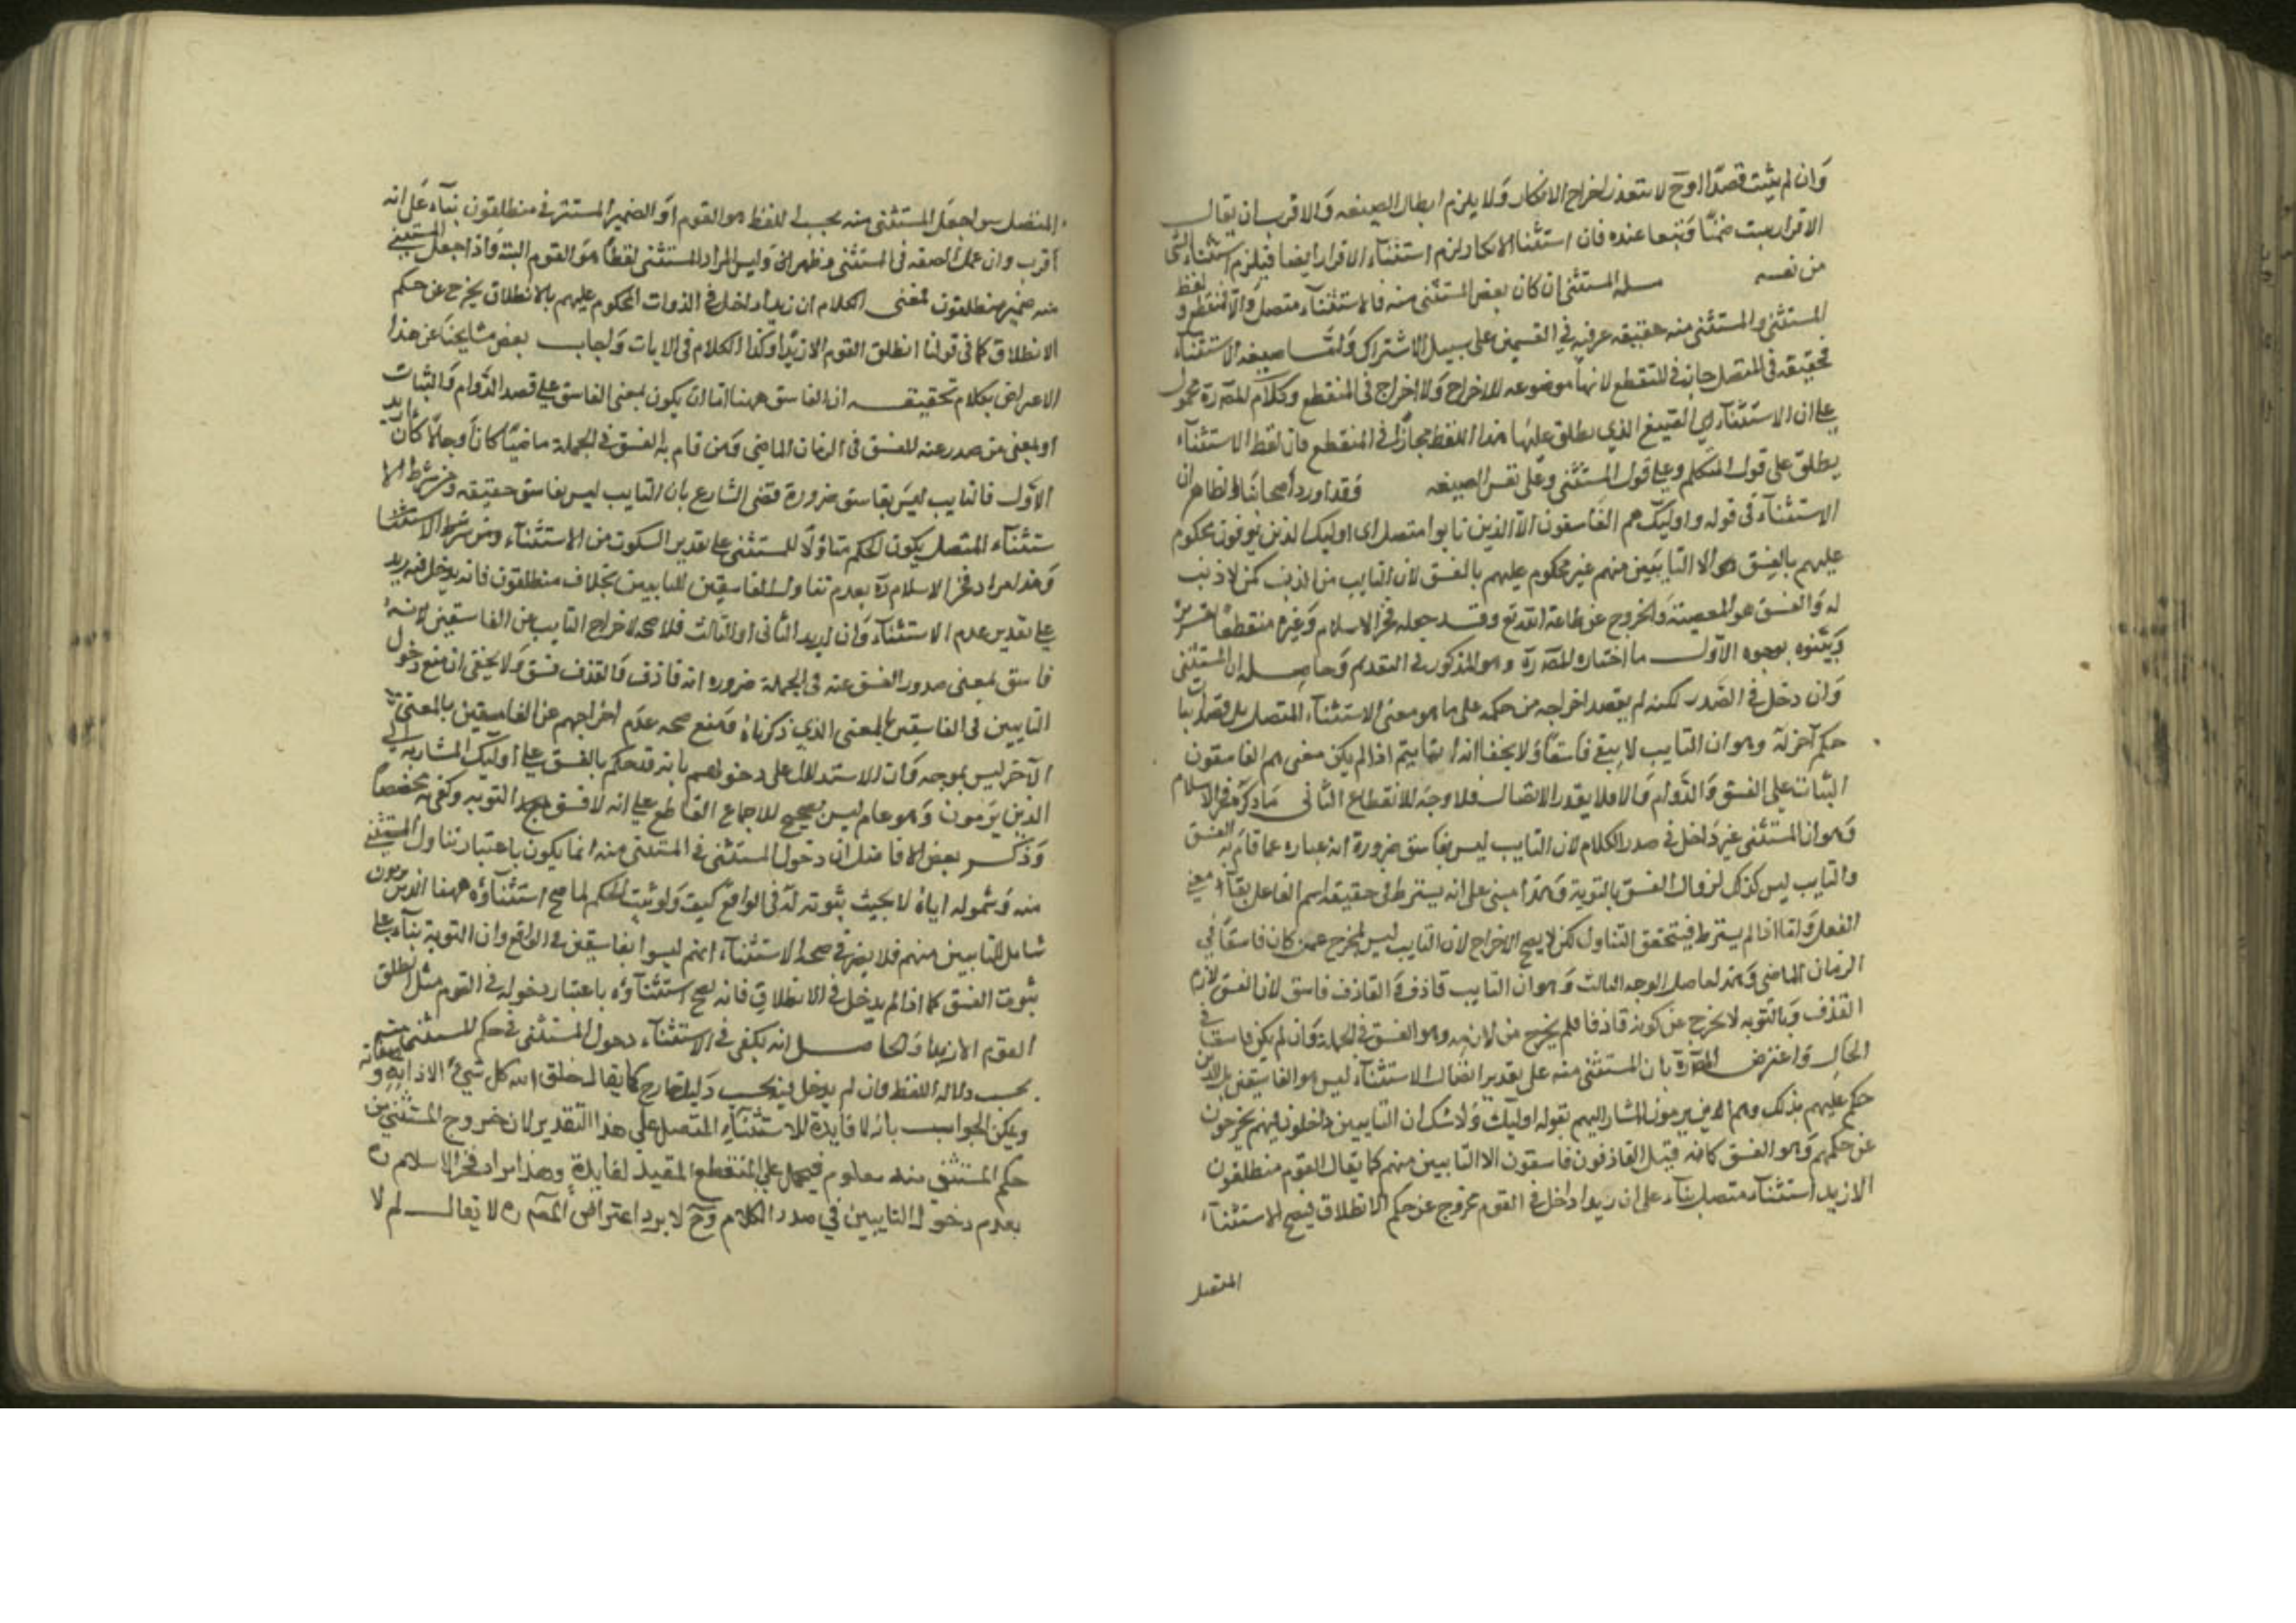 وان لم يثبت قصدا اوح لا يتعذر اخراج الانكار ولا يلزم ابطال الصيغه والاقرب ان يقال
الاقرار يثبت ضمنا وتبعا عنده فان استثنا الانكار لزم استثناء الاقرار ايضا فيلزم استثناء الشى
من نفسه مسله المستثنى ان كان بعض المستثنى منه فالاستثناء متصل والا فمنقطع ولفظ
المستثنى والمستثنى منه حقيقه عرفيه في القسمين على سبيل الاشتراك وامّا صيغه الاستثناء
فحقيقه فى المتصل مجاز فى المنقطع لانها موضوعه للاخراج ولا اخراج فى المنقطع وكلام المصّ رة محمول
على ان الاستثناء اي الصيغ الذي يطلق عليها هذا اللفظ مجاز فى المنقطع فان لفظ الاستثناء
يطلق على قول المتكلم وعلى قول المستثنى وعلى نفس الصيغه فقد اورد اصحابنا والظاهر ان
الاستثناء فى قوله واوليك هم الفاسقون الا الذين تابوا متصل اى اوليك الذين يرمون محكوم
عليهم بالفسق الا التايبين منهم غير محكوم عليهم بالفسق لان التايب من الذنب كمن لا ذنب
له والفسق هو المعصية والخروج عن طاعة الله تع وقد جعله فخر الاسلام وغيره منقطعا
وبينوه بوجوه الاول ما اختاره المصّ رة وهو المذكور فى التقديم وحاصله ان المستثنى
وان دخل فى الصدر لكنه لم يقصد اخراجه من حكمه على ما هو معنى الاستثناء المتصل بل قصد اثبات
حكم آخر له وهو ان التايب لا يبقى فاسقا ولا يخفا انه انما يتم اذا لم يكن معنى هم الفاسقون
الثبات على الفسق والدوام والا فلا يقدر الاتصال فلا وجه للانقطاع الثانى ما ذكره فخر الاسلام
وهو ان المستثنى غير داخل فى صدر الكلام لان التايب ليس بفاسق ضرورة انه عباره عما قام به الفسق
والتايب ليس كذلك لزوال الفسق بالتوبة وهذا مبنى على انه يشترط فى حقيقه اسم الفاعل بقاء معنى
الفعل وامّا اذا لم يشترط فيتحقق التناول لكن لا يصح الاخراج لان التايب ليس بمخرج عمن كان فاسقا فى
الزمان الماضى وهذا حاصل الوجه الثالث وهو ان التايب قاذف والقاذف فاسق لان الفسق لازم
القذف وبالتوبه لا يخرج عن كونه قاذفا فلم يخرج من لازمه وهو الفسق فى الجملة وان لم يكن فاسقا فى
الحال واعترض المصّ رة بان المستثنى منه على تقدير اتصال الاستثناء ليس هو الفاسقين بل الذين
حكم عليهم بذلك وهم الذين يرمون المشار اليهم بقوله اوليك ولا شك ان التايبين داخلون فيهم يخرجون
عن حكمهم وهو الفسق كانه قيل القاذفون فاسقون الا التايبين منهم كما يقال القوم منطلقون
الا زيد استثناء متصل بناء على ان زيدا داخل فى القوم مخروج عن حكم الانطلاق فيصح الاستثناء
المتصل
المتصل سوا جعل المستثنى منه بحسب اللفظ هو القوم او الضمير المستتر فى منطلقون بناء على انه
اقرب وان عمل الصفه فى المستثنى اظهر وليس المراد المستثنى لفظا هو القوم البتة واذا جعل المستثنى
منه ضمير منطلقون فمعنى الكلام ان زيدا داخل فى الذوات المحكوم عليهم بالانطلاق يخرج عن حكم
الانطلاق كما فى قولنا انطلق القوم الا زيدا وكذا الكلام فى الايات واجاب بعض مشايخنا عن هذا
الاعتراض بكلام تحقيقه ان الفاسق ههنا امّا ان يكون بمعنى الفاسق على قصد الدوام والثبات
او بمعنى من صدر عنه الفسق فى الزمان الماضى ومن قام به الفسق فى الجملة ماضيا كان او حالا فان اريد
الاول فالتايب ليس بفاسق ضرورة قضى الشارع بان التايب ليس بفاسق حقيقه ومن شرط الا
ستثناء المتصل يكون الحكم متناولا للمستثنى على تقدير السكوت من الاستثناء ومن شرط الاستثنا
وهذا مراد فخر الاسلام رة بعدم تناول الفاسقين للتايبين بخلاف منطلقون فانه يدخل فيه زيد
على تقدير عدم الاستثناء وان اريد الثانى او الثالث فلا صحه لاخراج التايب عن الفاسقين لانه
فاسق بمعنى صدور الفسق عنه فى الجملة ضروره انه قاذف والقذف فسق ولا يخفى ان منع دخول
التايبين فى الفاسقين بالمعنى الذي ذكرناه ومنع صحه عدم اخراجهم عن الفاسقين بالمعنى
الآخر ليس بموجه وان الاستدلال على دخولهم بانه قد حكم بالفسق على اوليك المشار به الى
الذين يرمون وهو عام ليس بصحيح للاجماع القاطع على انه لا فسق بعد التوبه وكفى به مخصصا
وذكر بعض الافاضل ان دخول المستثنى فى المستثنى منه انما يكون باعتبار تناول المستثنى
منه وشموله اياه لا بحيث ثبوته له فى الواقع كيف ولو ثبت الحكم لما صح استثناؤه ههنا الذين يرمون
شامل للتايبين منهم فلا يضر فى صحة الاستثناء انهم ليسوا بفاسقين فى الواقع وان التوبة بناء على
ثبوت الفسق كما اذا لم يدخل فى الانطلاق فانه يصح استثناؤه باعتبار دخوله فى القوم مثل انطلق
القوم الا زيدا والحاصل انه يكفى فى الاستثناء دخول المستثنى فى حكم المستثنى منه
بحسب دلاله اللفظ وان لم يدخل فيه بحسب دليل خارج كما يقال خلق الله كل شيء الا ذاته و
ويمكن الجواب بانه لا فايدة للاستثناء المتصل على هذا التقدير لان خروج المستثنى من
حكم المستثنى منه معلوم فيحمل على المنقطع المفيد لفايدة وهذا مراد فخر الاسلام رة
بعدم دخول التايبين في صدر الكلام وح لا يرد اعتراض المصّ رة لا يقال لم لا